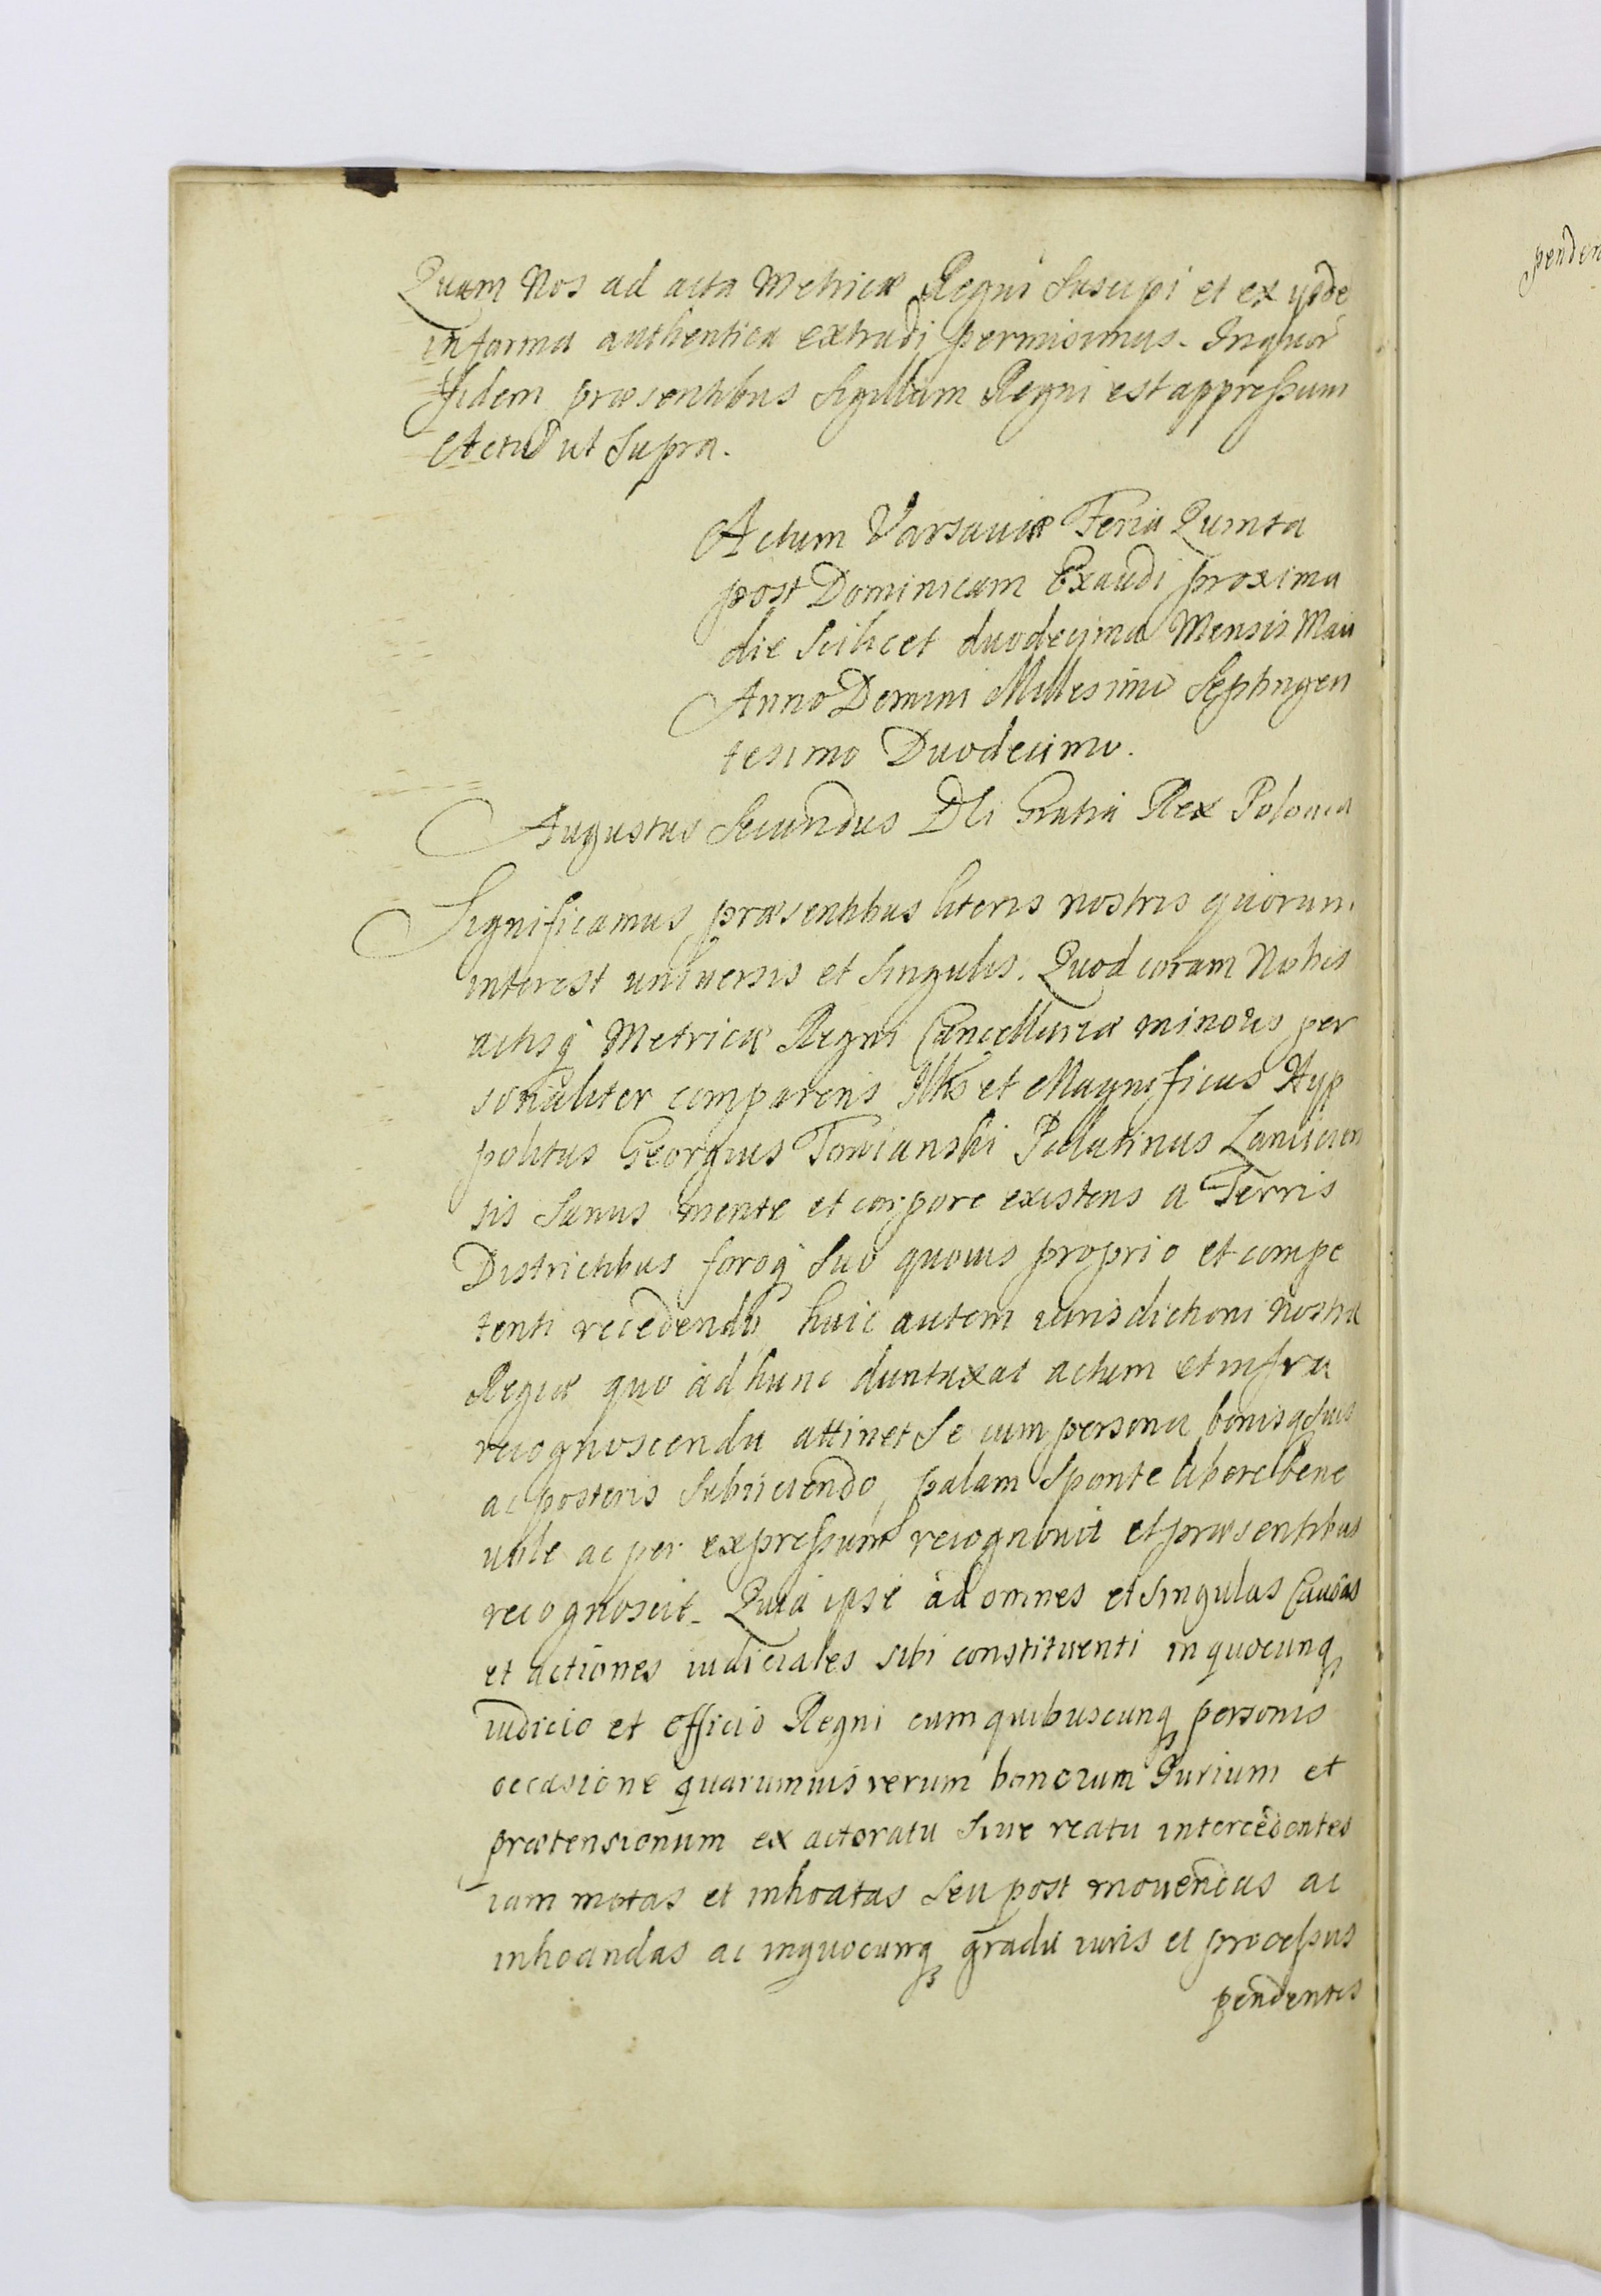 Quam Nos ad acta Metricæ Regni Suscipi et ex ysde
in forma authentica extradi permisimus. Inquor
Fidem præsentibus Sigillum Regni est appressum
Actu ut Supra.
Actum Varsaviæ Feria Quinta
post Dominicam Exaudi proxima
die Scilicet duodecima Mensis Maii
Anno Domini Millesimo Septingen
tesimo Duodecimo.
Augustus Secundus DEi Gratia Rex Poloniæ
Significamus præsentibus literis nostris quorum
interest universis et Singulis. Quod coram Nobis
actisq Metricæ Regni Cancellariæ minoris per
sonaliter comparens Illris et Magnificus Hyp
politus Georgius Towianski Palatinus Lanicien
sis Sanus mente et corpore existens a Terris
Districtibus foroq Suo quovis proprio et compe
tenti recedendo huic autem iurisdictioni nostræ
Regiæ quo ad hunc duntaxat actum et infra
recognoscenda attinet Se cum persona bonisq Suis
ac posteris Subiiciendo, palam Sponte libere bene
vole ac per expressum recognovit et præsentibus
recognoscit. Quia ipse ad omnes et Singulas Causas
et actiones iudiciales sibi constituenti in quocunq
iudicio et officio Regni cum quibuscunq personis
occasione quarumvis rerum bonorum Iurium et
prætensionum ex actoratu Sive reatu intercedentes
iam motas et inhoatas Seu post movendas ac
inhoandas ac inquocunq gradu iuris et processus
pendentes
penden